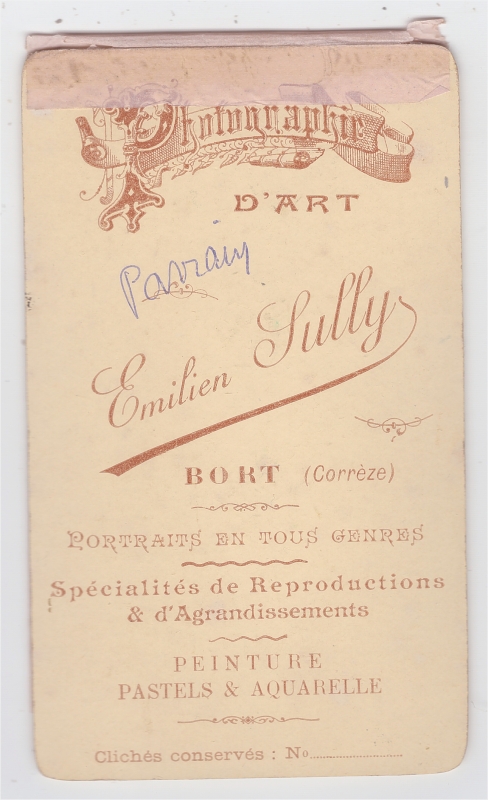 Photographie
D'ART
Parrain
Emilien Sully
BORT (Corrèze)
PORTRAITS EN TOUS GENRES
Spécialités de Reproductions
& d'Agrandissements
PEINTURE
PASTELS & AQUARELLE
Clichés conservés : No..............................